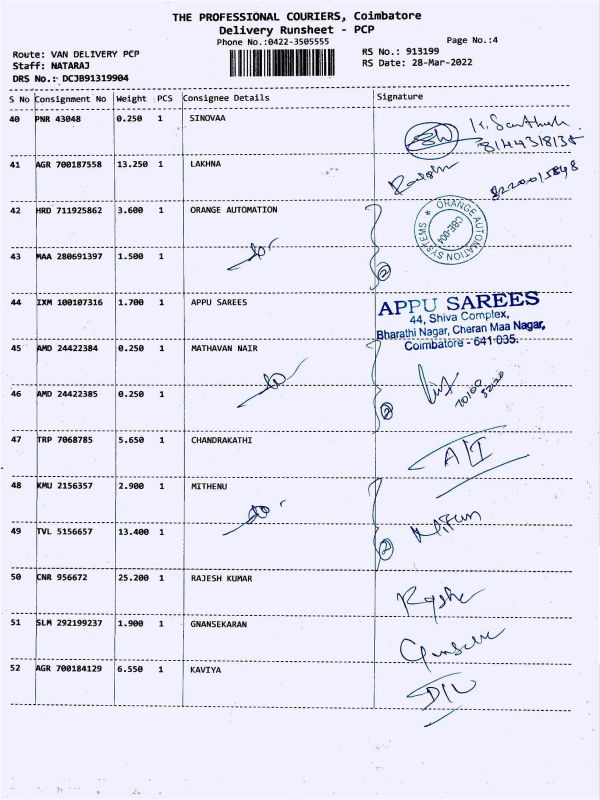 THE PROFESSIONAL COURIERS, Coimbatore
Delivery Runsheet - PCP
Phone No.:0422-3505555
Page No.:4
Route: VAN DELIVERY PCP
RS No.: 913199
Staff: NATARAJ
RS Date: 28-Mar-2022
DRS No.: DCJB91319904
S No Consignment No Weight PCS Consignee Details Signature
40 PNR 43048 0.250 1 SINOVAA
41 AGR 700187558 13.250 1 LAKHNA
42 HRD 711925862 3.600 1 ORANGE AUTOMATION
ORANGE AUTOMATION SYSTEMS ★
CBE-004
43 MAA 280691397 1.500 1
2
44 IXM 100107316 1.700 1 APPU SAREES
APPU SAREES
44, Shiva Complex,
Bharathi Nagar, Cheran Maa Nagar,
Coimbatore - 641 035.
45 AMD 24422384 0.250 1 MATHAVAN NAIR
46 AMD 24422385 0.250 1
2
47 TRP 7068785 5.650 1 CHANDRAKATHI
48 KMU 2156357 2.900 1 MITHENU
49 TVL 5156657 13.400 1
2
50 CNR 956672 25.200 1 RAJESH KUMAR
51 SLM 292199237 1.900 1 GNANSEKARAN
52 AGR 700184129 6.550 1 KAVIYA